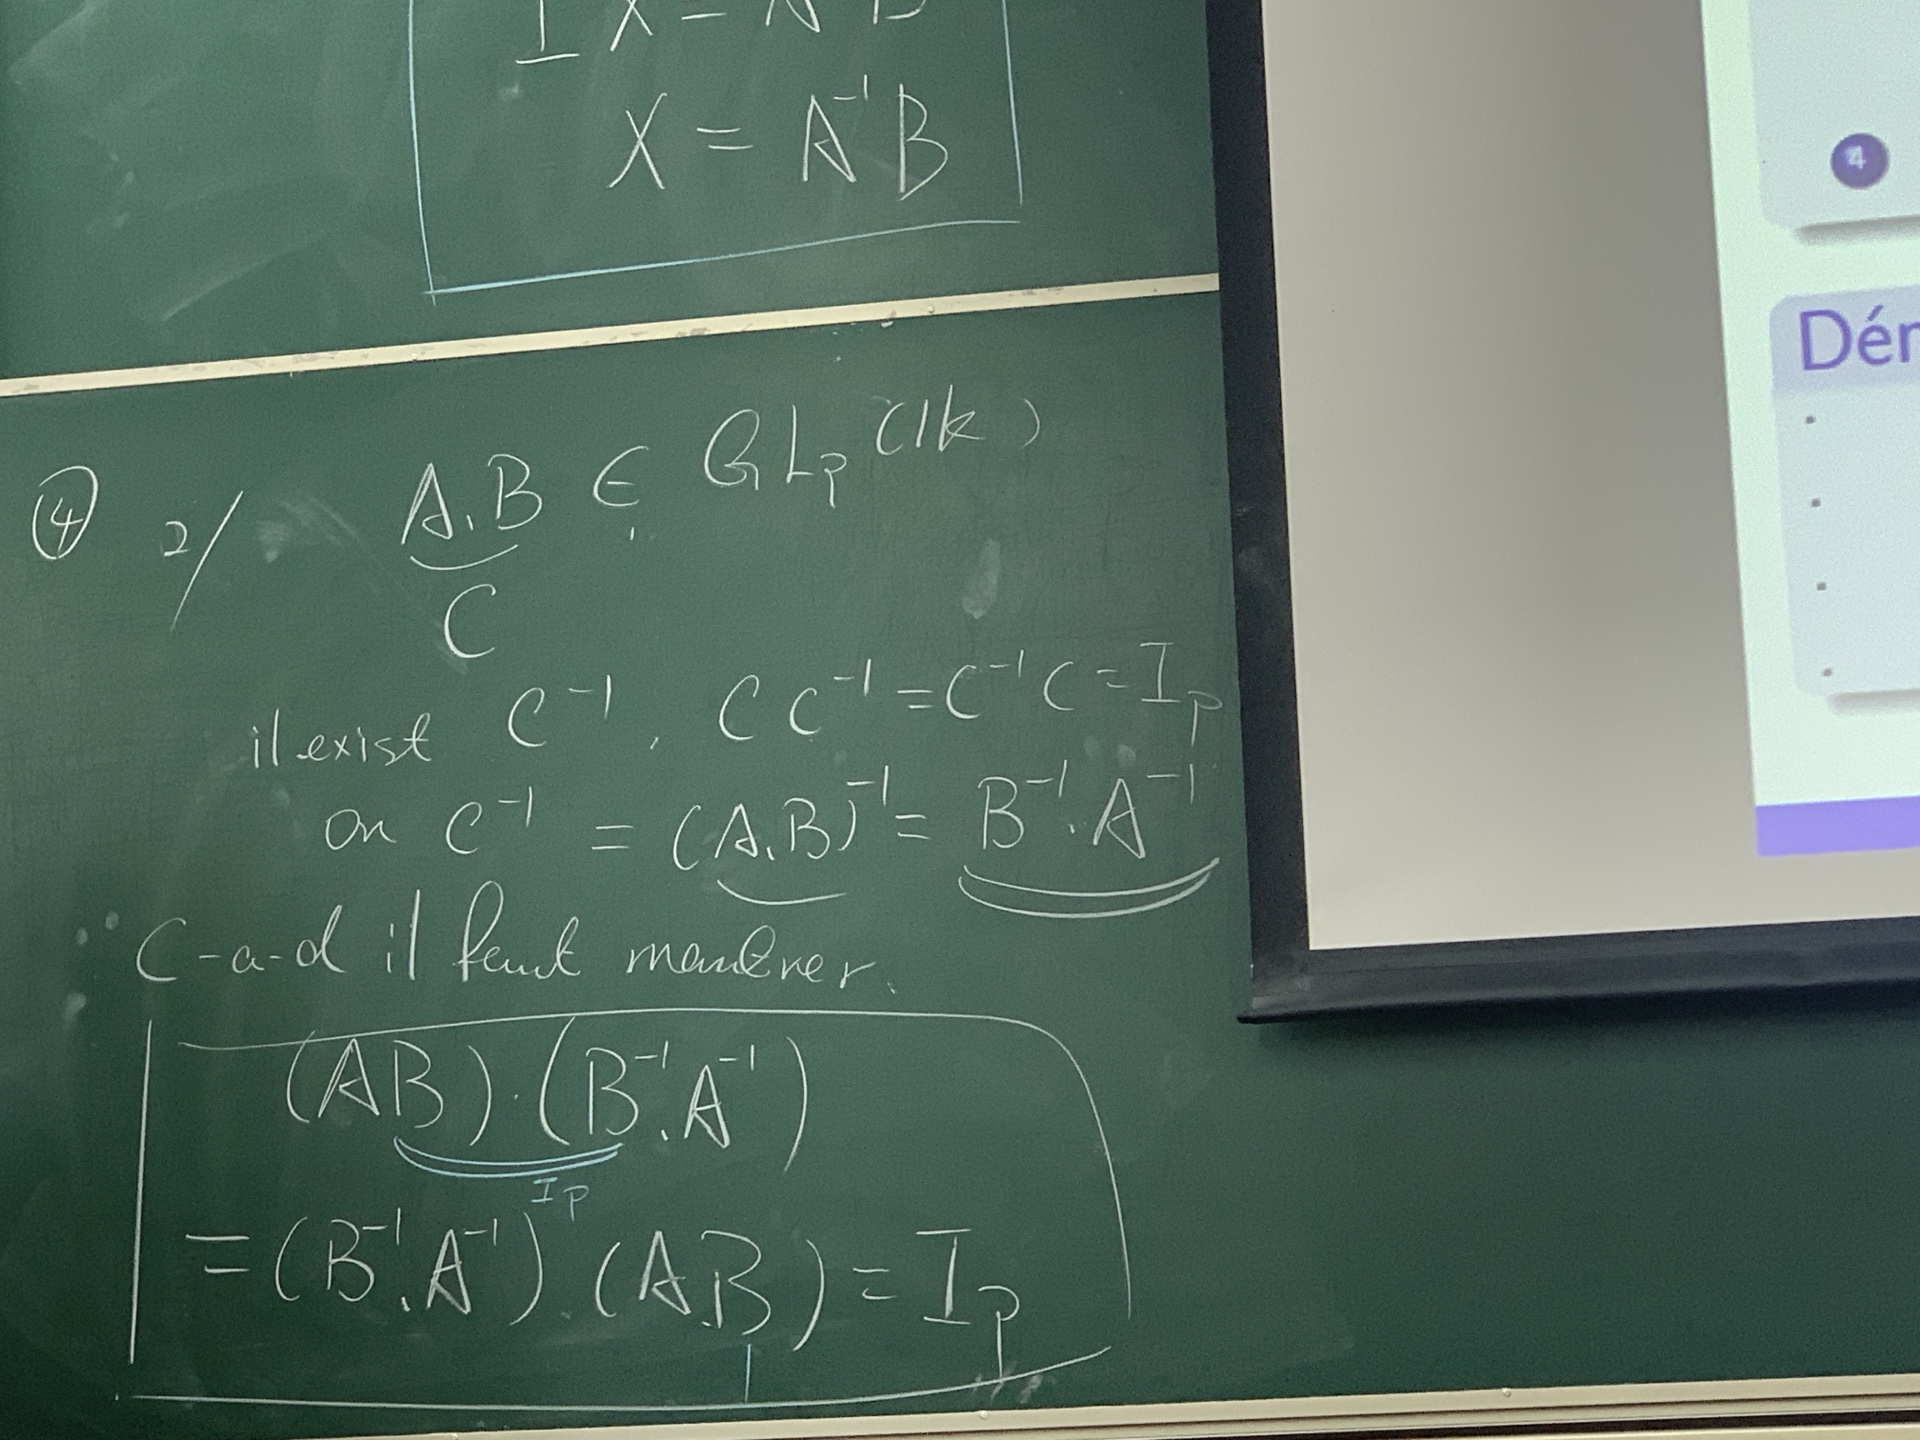 I X = A⁻¹B
X = A⁻¹B
④ 2/ A.B ∈ GLp(𝕂)
C
il exist C⁻¹, C C⁻¹ = C⁻¹ C = Ip
on C⁻¹ = (A.B)⁻¹ = B⁻¹.A⁻¹
C-a-d il faut montrer.
(AB).(B⁻¹.A⁻¹)
Ip
= (B⁻¹.A⁻¹).(A.B) = Ip
4